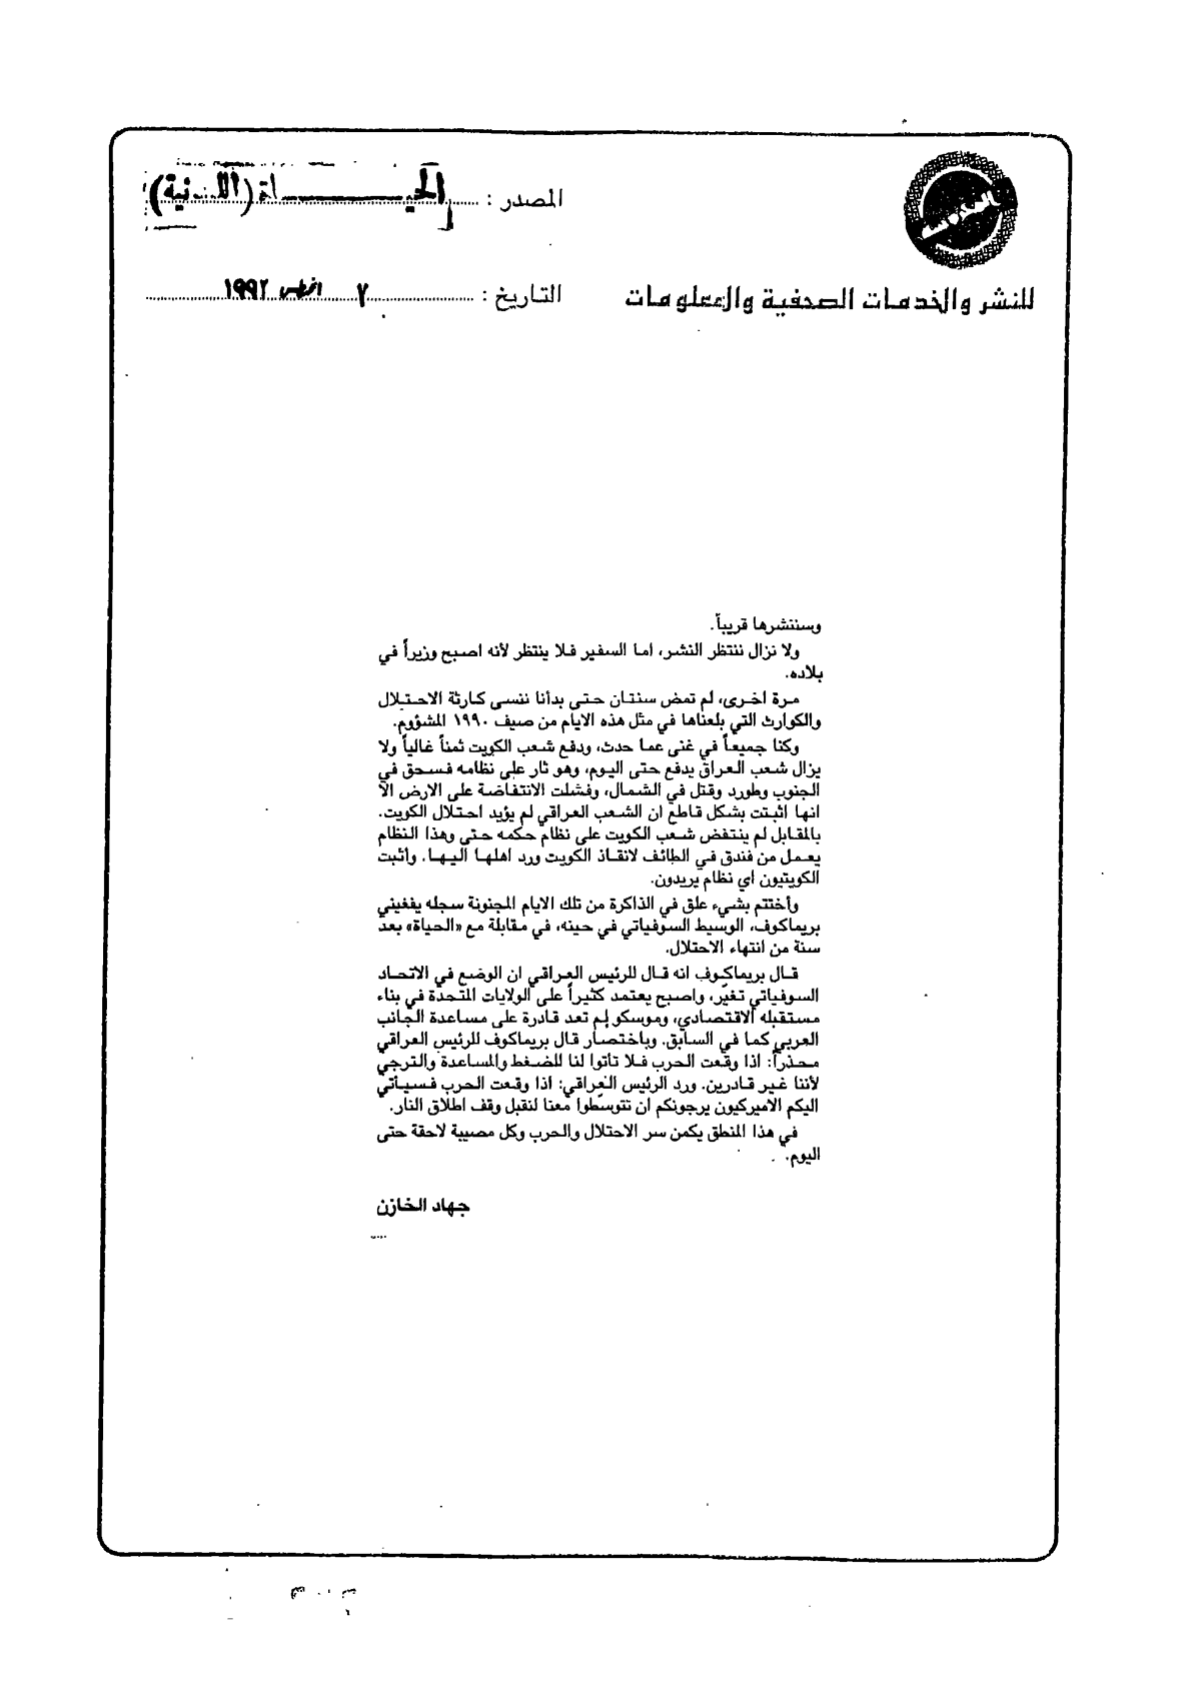 المصدر : الحيـــاة (اللندنية)
للنشر والخدمات الصحفية والمعلومات
التاريخ : ٧ اغطس ١٩٩٢
وسننشرها قريباً.
ولا نزال ننتظر النشر، اما السفير فلا ينتظر لأنه اصبح وزيراً في
بلاده.
مرة اخرى، لم تمض سنتان حتى بدأنا ننسى كارثة الاحتلال
والكوارث التي بلعناها في مثل هذه الايام من صيف ١٩٩٠ المشؤوم.
وكنا جميعاً في غنى عما حدث، ودفع شعب الكويت ثمناً غالياً ولا
يزال شعب العراق يدفع حتى اليوم، وهو ثار على نظامه فسحق في
الجنوب وطورد وقتل في الشمال، وفشلت الانتفاضة على الارض الا
انها اثبتت بشكل قاطع ان الشعب العراقي لم يؤيد احتلال الكويت.
بالمقابل لم ينتفض شعب الكويت على نظام حكمه حتى وهذا النظام
يعمل من فندق في الطائف لانقاذ الكويت ورد اهلها اليها. وأثبت
الكويتيون اي نظام يريدون.
وأختتم بشيء علق في الذاكرة من تلك الايام المجنونة سجله يفغيني
بريماكوف، الوسيط السوفياتي في حينه، في مقابلة مع «الحياة» بعد
سنة من انتهاء الاحتلال.
قال بريماكوف انه قال للرئيس العراقي ان الوضع في الاتحاد
السوفياتي تغيّر، واصبح يعتمد كثيراً على الولايات المتحدة في بناء
مستقبله الاقتصادي، وموسكو لم تعد قادرة على مساعدة الجانب
العربي كما في السابق. وباختصار قال بريماكوف للرئيس العراقي
محذراً: اذا وقعت الحرب فلا تاتوا لنا للضغط والمساعدة والترجي
لأننا غير قادرين. ورد الرئيس العراقي: اذا وقعت الحرب فسيأتي
اليكم الاميركيون يرجونكم ان تتوسّطوا معنا لنقبل وقف اطلاق النار.
في هذا المنطق يكمن سر الاحتلال والحرب وكل مصيبة لاحقة حتى
اليوم.
جهاد الخازن